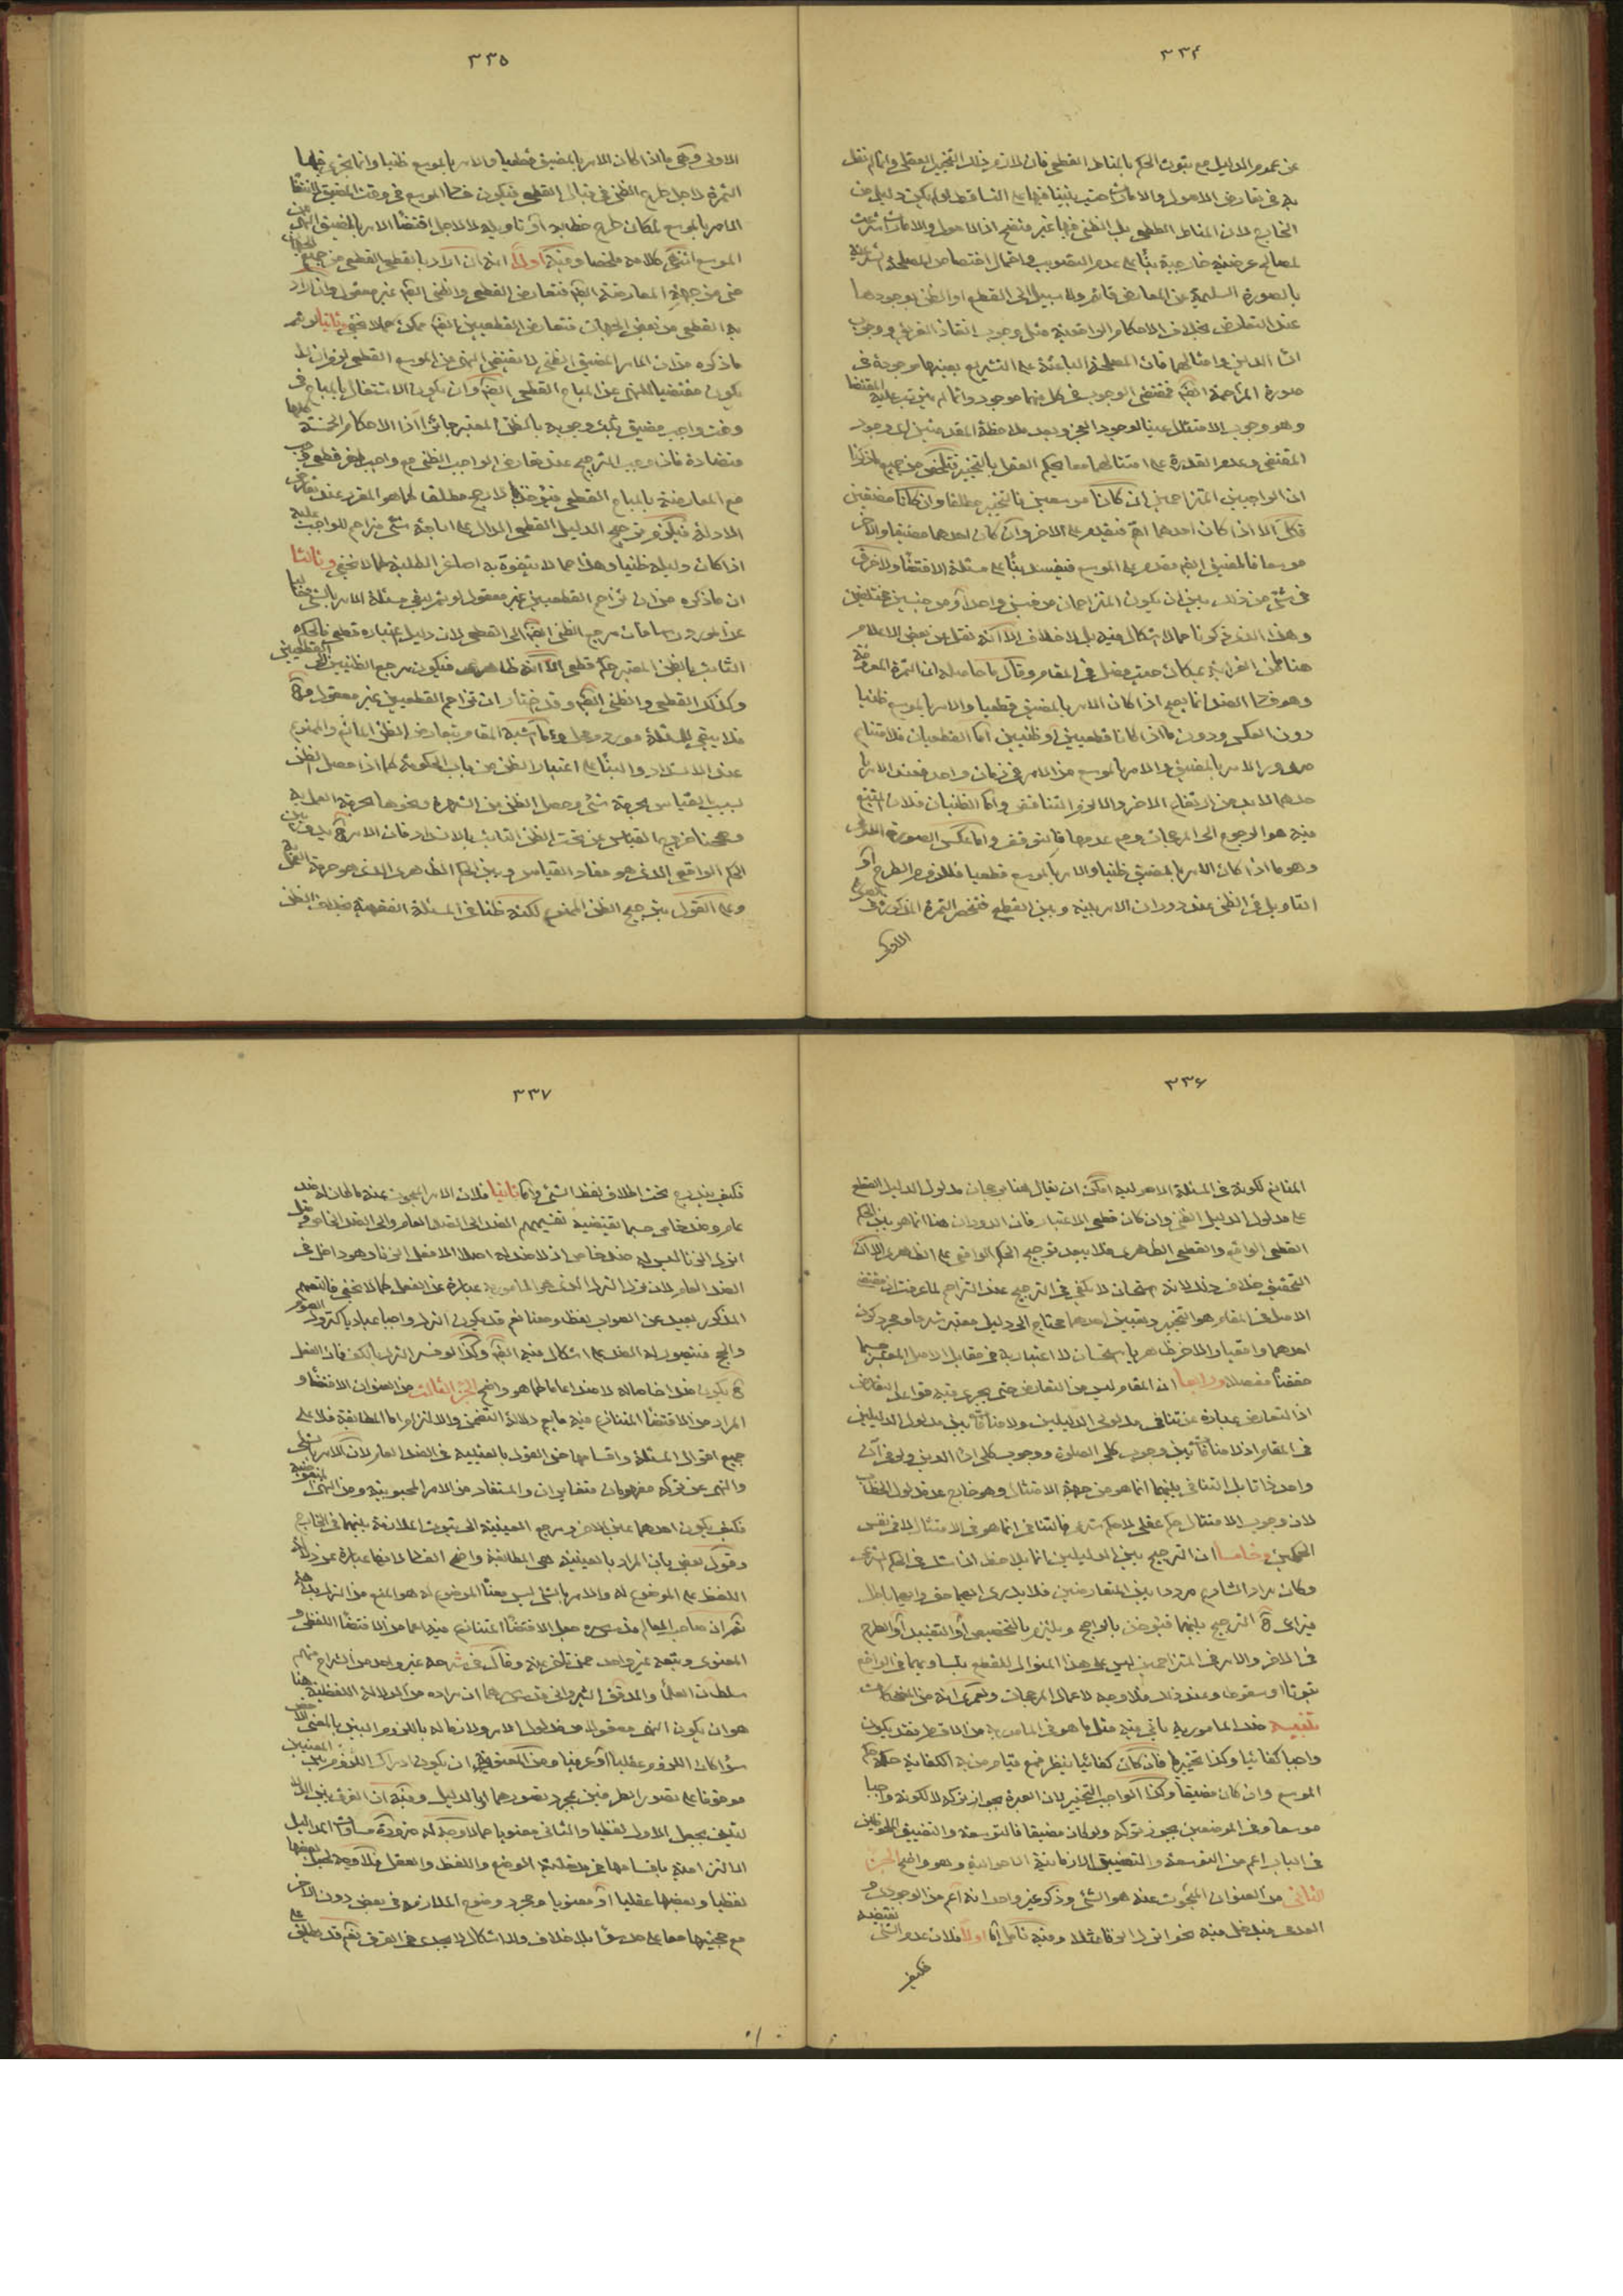 ٣٣٤
عن عموم الدليل مع ثبوت الحكم بالمناط القطعي فان لازم ذلك التخيير العقلي وانما لم نقل
به في تعارض الاصول والامارات حيث بنينا فيها على التساقط لو لم يكن دليل من
الخارج لان المناط القطعي بل الظني فيها غير منقح اذ الاصول والامارات شرعت
لمصالح عرضية خارجية بناء على عدم التصويب واحتمال اختصاص المصلحة
بالصورة السليمة عن المعارض قائم ولا سبيل الى القطع او الظن بوجودها
عند التعارض بخلاف الاحكام الواقعية مثل وجوب انقاذ الغريق ووجوب
اداء الدين وامثالهما فان المصلحة الباعثة على التشريع بعينها موجودة في
صورة المزاحمة فمقتضى الوجوب في كل منهما موجود وانما لم يترتب عليه
وهو وجوب الامتثال عينا لوجود العجز وبعد ملاحظة العقل وجود
المقتضي وعدم القدرة على امتثالهما معا يحكم العقل بالتخيير فتلخص من جميع ما ذكرنا
ان الواجبين المتزاحمين ان كانا موسعين فالتخيير مطلقا وان كانا مضيقين
فكك الا اذا كان احدهما اهم فيقدم على الاخر وان كان احدهما مضيقا والاخر
موسعا فالمضيق مقدم على الموسع فيفسد بناء على مسئلة الاقتضاء ولا فرق
في شيء من ذلك بين ان يكون المتزاحمان من جنس واحد او من جنسين مختلفين
وهذا الذي ذكرنا مما لا اشكال فيه بل لا خلاف الا انه نقل عن بعض الاعلام
هنا من الغرابة بمكان حيث فصل في المقام وقال ما حاصله ان الثمرة المعروفة
وهو فساد الضد انما يصح اذا كان الامر بالمضيق قطعيا والامر بالموسع ظنيا
دون العكس ودون ما اذا كانا قطعيين او ظنيين اما القطعيان فلامتناع
صدور الامر بالمضيق والامر بالموسع من الامر في زمان واحد فعند الامر
باحدهما لا بد من ارتفاع الاخر والا لزم التناقض واما الظنيان فلان المتبع
فيه هو الرجوع الى المرجحات ومع عدمها فالتوقف واما عكس الصورة
وهو ما اذا كان الامر بالمضيق ظنيا والامر بالموسع قطعيا فللزوم الطرح او
التاويل في الظني عند دوران الامر بينه وبين القطعي فتنحصر الثمرة المذكورة في
الاولى
٣٣٥
الاولى وهي ما اذا كان الامر بالمضيق قطعيا والامر بالموسع ظنيا وانما تجري فيها
الثمرة لاجل طرح الظني في قبال القطعي فيكون فساد الموسع في وقت المضيق لانتفاء
الامر بالموسع لمكان طرح خطابه او تاويله لا لاجل اقتضاء الامر بالمضيق النهي عن
الموسع انتهى كلامه ملخصا وفيه اولا انه ان اراد بالقطعي القطعي من جميع الجهات
حتى من جهة المعارضة فتعارض القطعي والظني غير معقول وان اراد
به القطعي من بعض الجهات فتعارض القطعيين ممكن كما لا يخفى وثانيا لو تم
ما ذكره من ان الامر المضيق الظني لا يقتضي النهي عن الموسع القطعي لزم ان لا
يكون مقتضيا للنهي عن المباح القطعي وان يكون الاشتغال بالمباح في
وقت واجب مضيق ثبت وجوبه بالظن المعتبر جائزا اذ الاحكام الخمسة كلها
متضادة فان وجب الترجيح عند تعارض الواجب الظني مع واجب اخر قطعي وجب
مع المعارضة بالمباح القطعي فيؤخذ بالارجح مطلقا كما هو المقرر عند تعارض
الادلة فيلزم ترجيح الدليل القطعي الدال على اباحة شيء مزاحم للواجب عليه
اذا كان دليله ظنيا وهذا مما لا يتفوه به اصاغر الطلبة كما لا يخفى وثالثا
ان ما ذكره من ان تزاحم القطعيين غير معقول لو تم لبقي مسئلة الامر بالشيء
عن المورد راسا فان مرجع الظني الى القطعي لان دليل اعتباره قطعي فالحكم
الثابت بالظن المعتبر حكم قطعي الا انه ظاهري فيكون مرجع الظنيين الى القطعيين
وكذلك القطعي والظني وقد اختار ان تزاحم القطعيين غير معقول
فلا يبقى للمسئلة مورد ومحل وما اشبه المقام بتعارض الظن المانع والممنوع
عند الانسداد والبناء على اعتبار الظن من باب الحكومة كما اذا حصل الظن
بسبب القياس بحرمة شيء وحصل الظن من الشهرة ونحوها بحرمة العمل به
وصححنا خروج القياس عن تحت الظن الثابت بالانسداد فان الامر ح يدور بين
الحكم الواقعي الذي هو مفاد القياس وبين الحكم الظاهري الذي هو حرمة العمل به
وعلى القول بترجيح الظن الممنوع لكونه ظنا في المسئلة الفقهية بخلاف الظن
٣٣٦
المانع لكونه في المسئلة الاصولية امكن ان يقال هنا برجحان مدلول الدليل القطعي
على مدلول الدليل الظني وان كان قطعي الاعتبار فان الدوران هنا انما هو بين الحكم
القطعي الواقعي والقطعي الظاهري فلا يبعد ترجيح الحكم الواقعي على الظاهري الا ان
التحقيق خلاف ذلك لانه استحسان لا يكفي في الترجيح عند التزاحم لما عرفت ان مقتضى
الاصل في المقام هو التخيير وتعيين احدهما محتاج الى دليل معتبر شرعا ومجرد كون
احدهما واقعيا والاخر ظاهريا استحسان لا اعتبار به في مقابل الاصل المعتبر حسبما
حققناه مفصلا ورابعا ان المقام ليس من التعارض حتى يجري فيه قواعد التعارض
اذ التعارض عبارة عن تنافي مدلولي الدليلين ولا منافاة بين مدلول الدليلين
في المقام اذ لا منافاة بين وجوب كلي الصلوة ووجوب كلي اداء الدين ولو في آن
واحد ذاتا بل التنافي بينهما انما هو من جهة الامتثال وهو خارج عن مدلول الخطاب
لان وجوب الامتثال حكم عقلي لا حكم شرعي فالتنافي انما هو في الامتثال لا في نفس
الحكمين وخامسا ان الترجيح بين الدليلين انما يلاحظ اذا شك في الحكم الشرعي
وكان مراد الشارع مرددا بين المتعارضين فلا يدرى ايهما حق وايهما باطل
فيراعى ح الترجيح بينهما فيؤخذ بالراجح ويلتزم بالتخصيص او التقييد او الطرح
في الاخر والامر في المتزاحمين ليس على هذا المنوال للقطع بتساويهما في الواقع
ثبوتا او سقوطا وعند ذلك فلا وجه لاعمال المرجحات ولعمري انه من المضحكات
تنبيه ضد المامور به ياتي فيه مثل ما هو في المامور به من الاقسام فقد يكون
واجبا كفائيا وكذا تخييريا فان كان كفائيا ينظر فمع قيام من به الكفاية حكمه حكم
الموسع وان كان مضيقا وكذا الواجب التخييري لان العبرة بجواز تركه لا لكونه واجبا
موسعا وفي الموضعين يجوز تركه ولو كان مضيقا فالتوسعة والتضيق الملحوظين
في الباب اعم من التوسعة والتضييق الازمانية الاحوالية وهو واضح الجزء
الثاني من العنوان المبحوث عنه هو الشيء وذكر غير واحد انه اعم من الوجودي و
العدمي فيدخل فيه نحو اترك الزنا مثلا وفيه تامل اما اولا فلان عدم الشيء نقيضه
فكيف
٣٣٧
فكيف يندرج تحت اطلاق لفظ الشيء واما ثانيا فلان الامر المبحوث عنه ما كان له ضد
عام وضد خاص حسبما يقتضيه تقسيمهم الضد الى الضد العام والى الضد الخاص وقول
اترك الزنا ليس له ضد خاص اذ لا ضد له اصلا الا فعل الزنا وهو داخل في
الضد العام لان ترك الترك الذي هو المامور به عبارة عن الفعل كما لا يخفى فالتعميم
المذكور بعيد عن الصواب لفظا ومعنا نعم قد يكون الترك واجبا عباديا كتروك الصوم
والحج فتصوير له الضد على اشكال فيه وكذا لو فسر الترك بالكف فان الفعل
ح يكون ضدا خاصا له لا ضدا عاما كما هو واضح الجزء الثالث من العنوان الاقتضاء و
المراد من الاقتضاء المتنازع فيه ما يعم دلالة التضمن والالتزام واما المطابقة فلا على
جميع اقوال المسئلة واقسامها حتى القول بالعينية في الضد العام لان الامر بالشيء
والنهي عن تركه مفهومان متغايران والمستفاد من الامر المحبوبية ومن النهي المبغوضية
فكيف يكون احدهما عين الاخر ومرجع العينية الى ثبوت الملازمة بينهما في الخارج
وقول بعض بان المراد بالعينية هي المطابقة واضح الفساد لانها عبارة عن دلالة
اللفظ على الموضوع له والامر بالشيء ليس معناه الموضوع له هو المنع من الترك بداهة
ثم ان صاحب المعالم قدس سره جعل الاقتضاء المتنازع فيه اعم من الاقتضاء اللفظي و
المعنوي وتبعه غير واحد ممن تاخر عنه وقال في شرحه غير واحد من الشراح منهم
سلطان العلماء والمدقق الشيرواني قدس سرهما ان مراده من الدلالة اللفظية هنا
هو ان يكون النهي معقولا من مدلول الامر ولازما له باللزوم البين بالمعنى الاخص
سواء كان اللزوم عقليا او عرفيا ومن المعنوية ان يكون ادراك اللزوم بين المعنيين
موقوفا على تصور الطرفين بمجرد تصورهما او بالدليل وفيه ان الفرق بين الدلالتين
بجعل الاول لفظيا والثاني معنويا مما لا وجه له ضرورة مساواة الدليل
الالتزامية باقسامها في مدخلية الوضع واللفظ والعقل فلا وجه لجعل بعضها
لفظيا وبعضها عقليا او معنويا ومجرد وضوح الملازمة في بعض دون الاخر
مع حجيتهما معا على حد سواء بلا خلاف ولا اشكال لا يجدي في الفرق نعم قد يطلق على